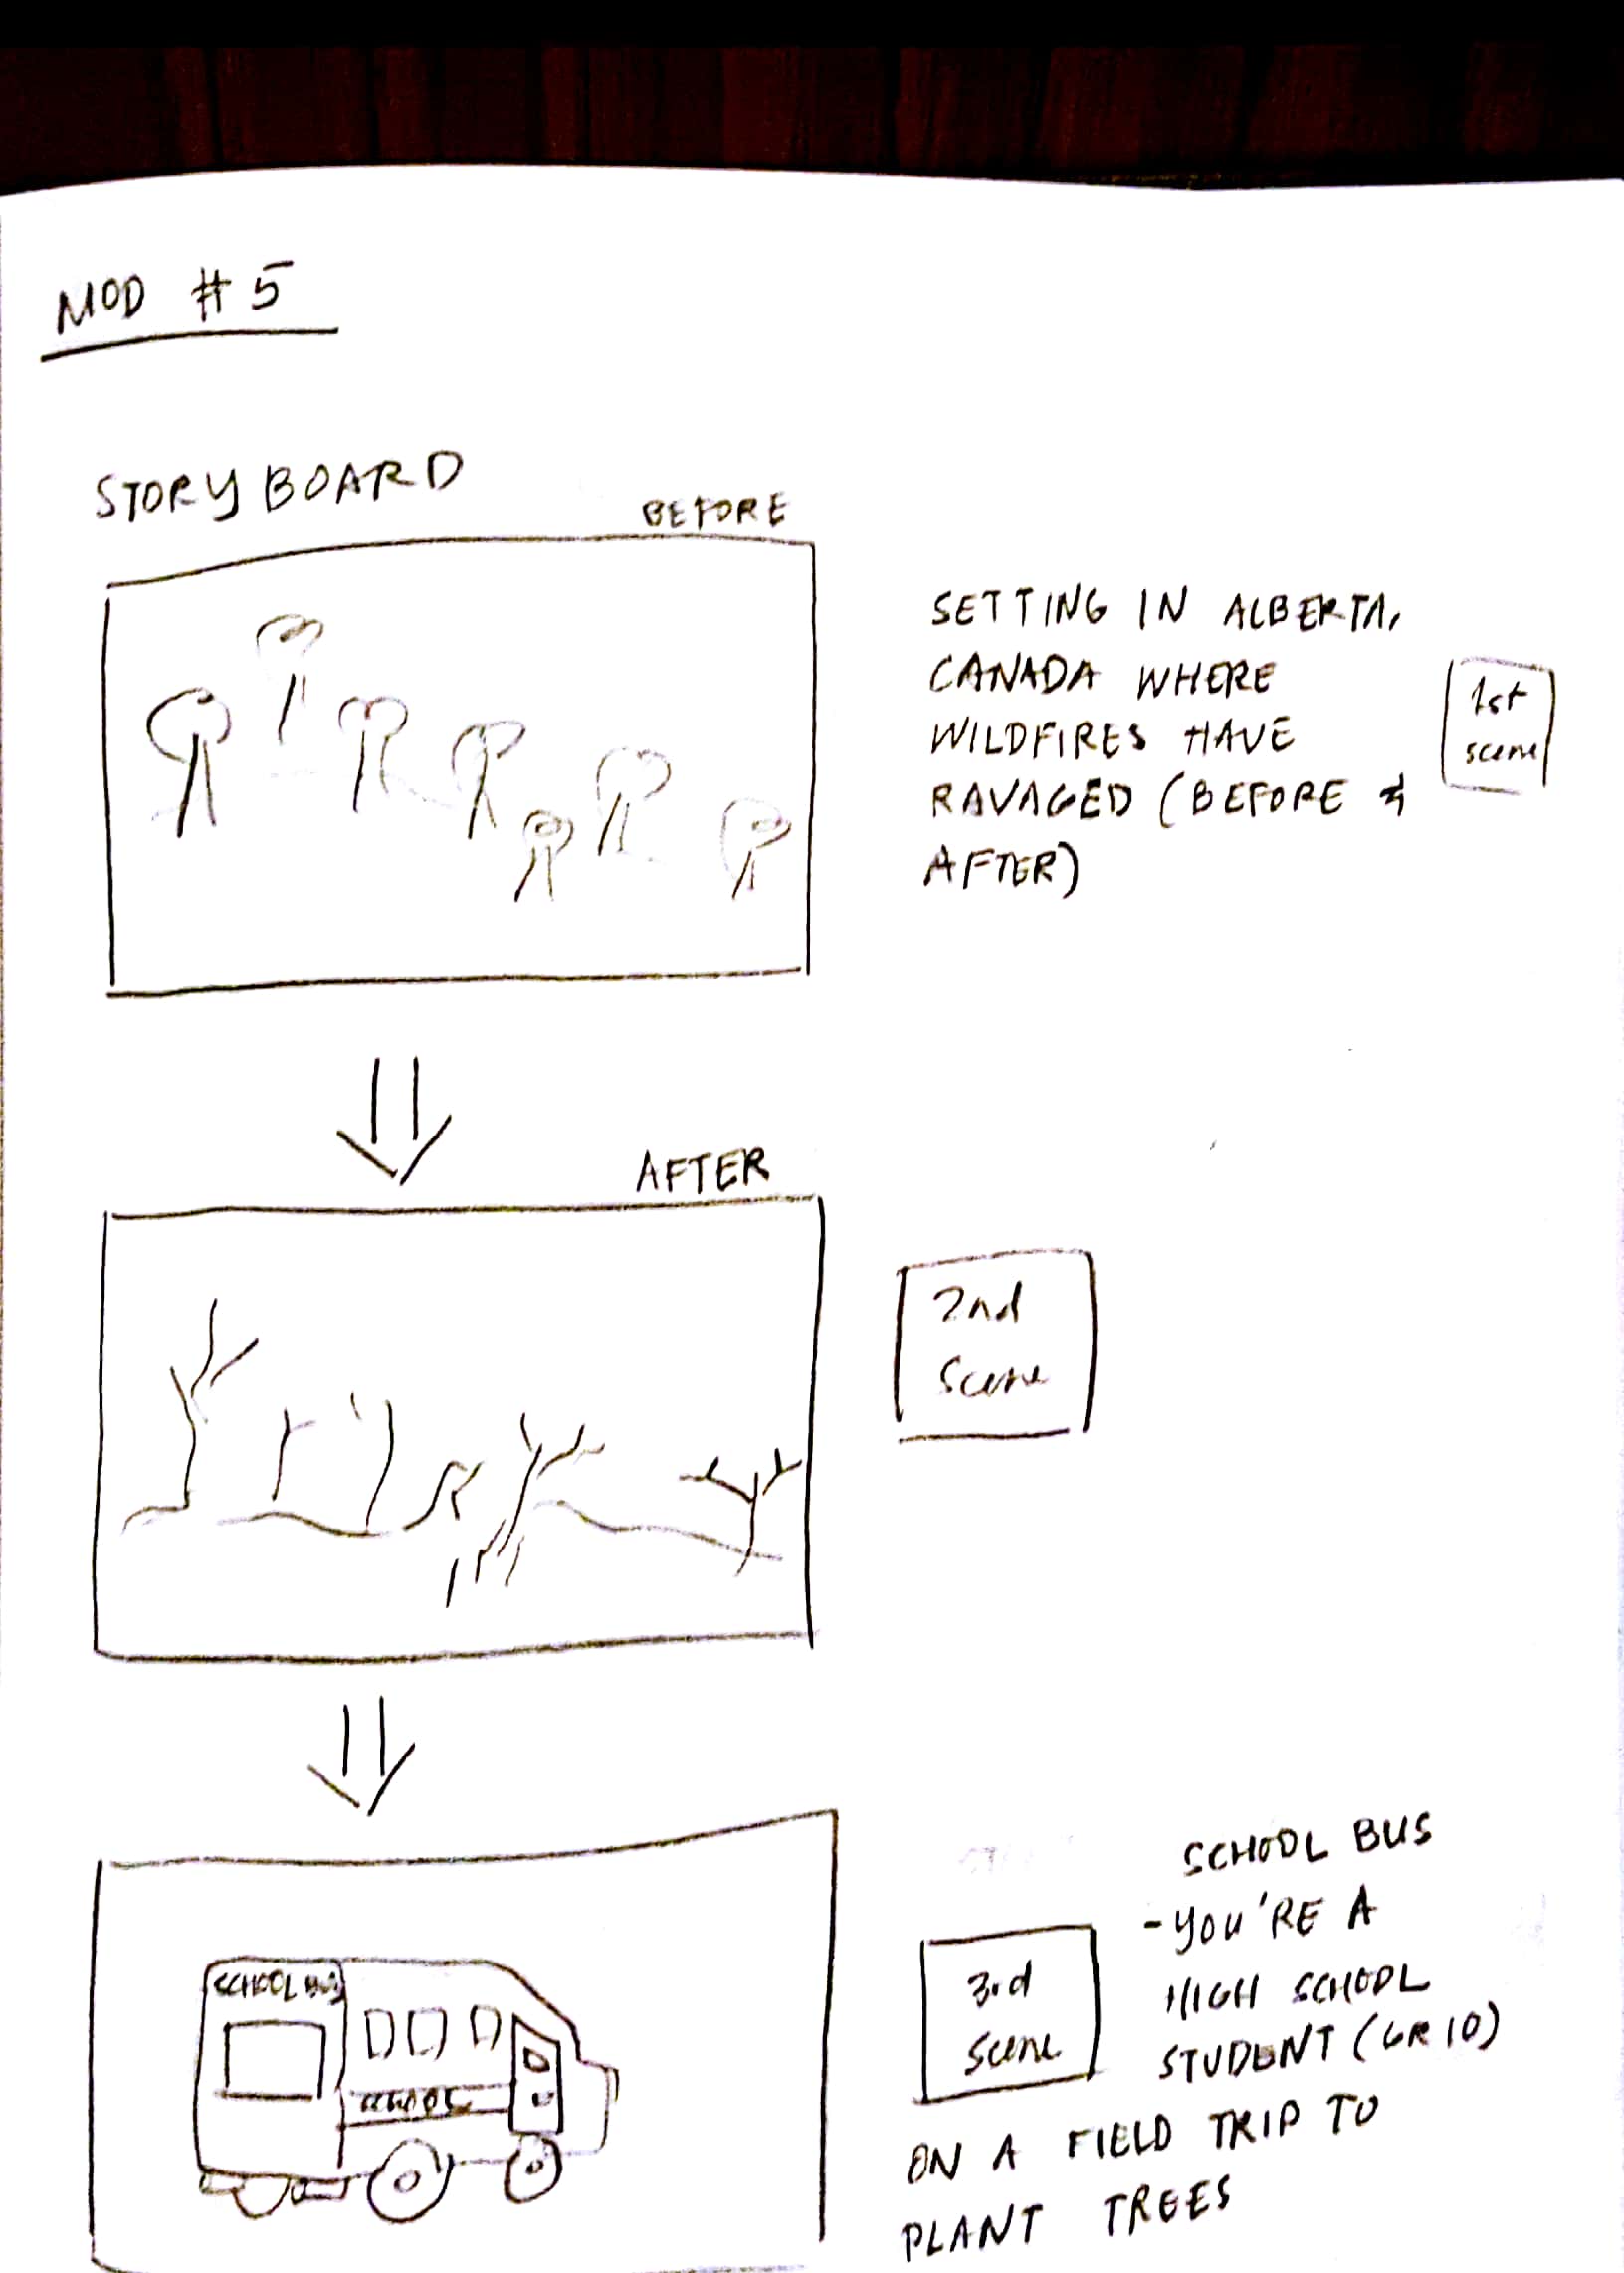 MOD #5
STORYBOARD
BEFORE
SETTING IN ALBERTA,
CANADA WHERE
WILDFIRES HAVE
RAVAGED (BEFORE &
AFTER)
1st
scene
AFTER
2nd
Scene
SCHOOL BUS
SCHOOL BUS
-YOU'RE A
HIGH SCHOOL
STUDENT (GR10)
ON A FIELD TRIP TO
PLANT TREES
3rd
Scene